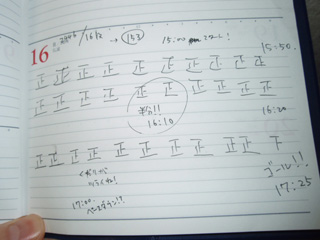 16
15:00 スタート!
15:50.
正 正 正 正 正 正 正 正 正 正
正 正 正 正 正 正 正 正 正 正
半分!!
16:10
16:20
正 正 正 正 正 正 正 正 正 下
17:00.
ペースダウン!?
ゴール!!
17:25